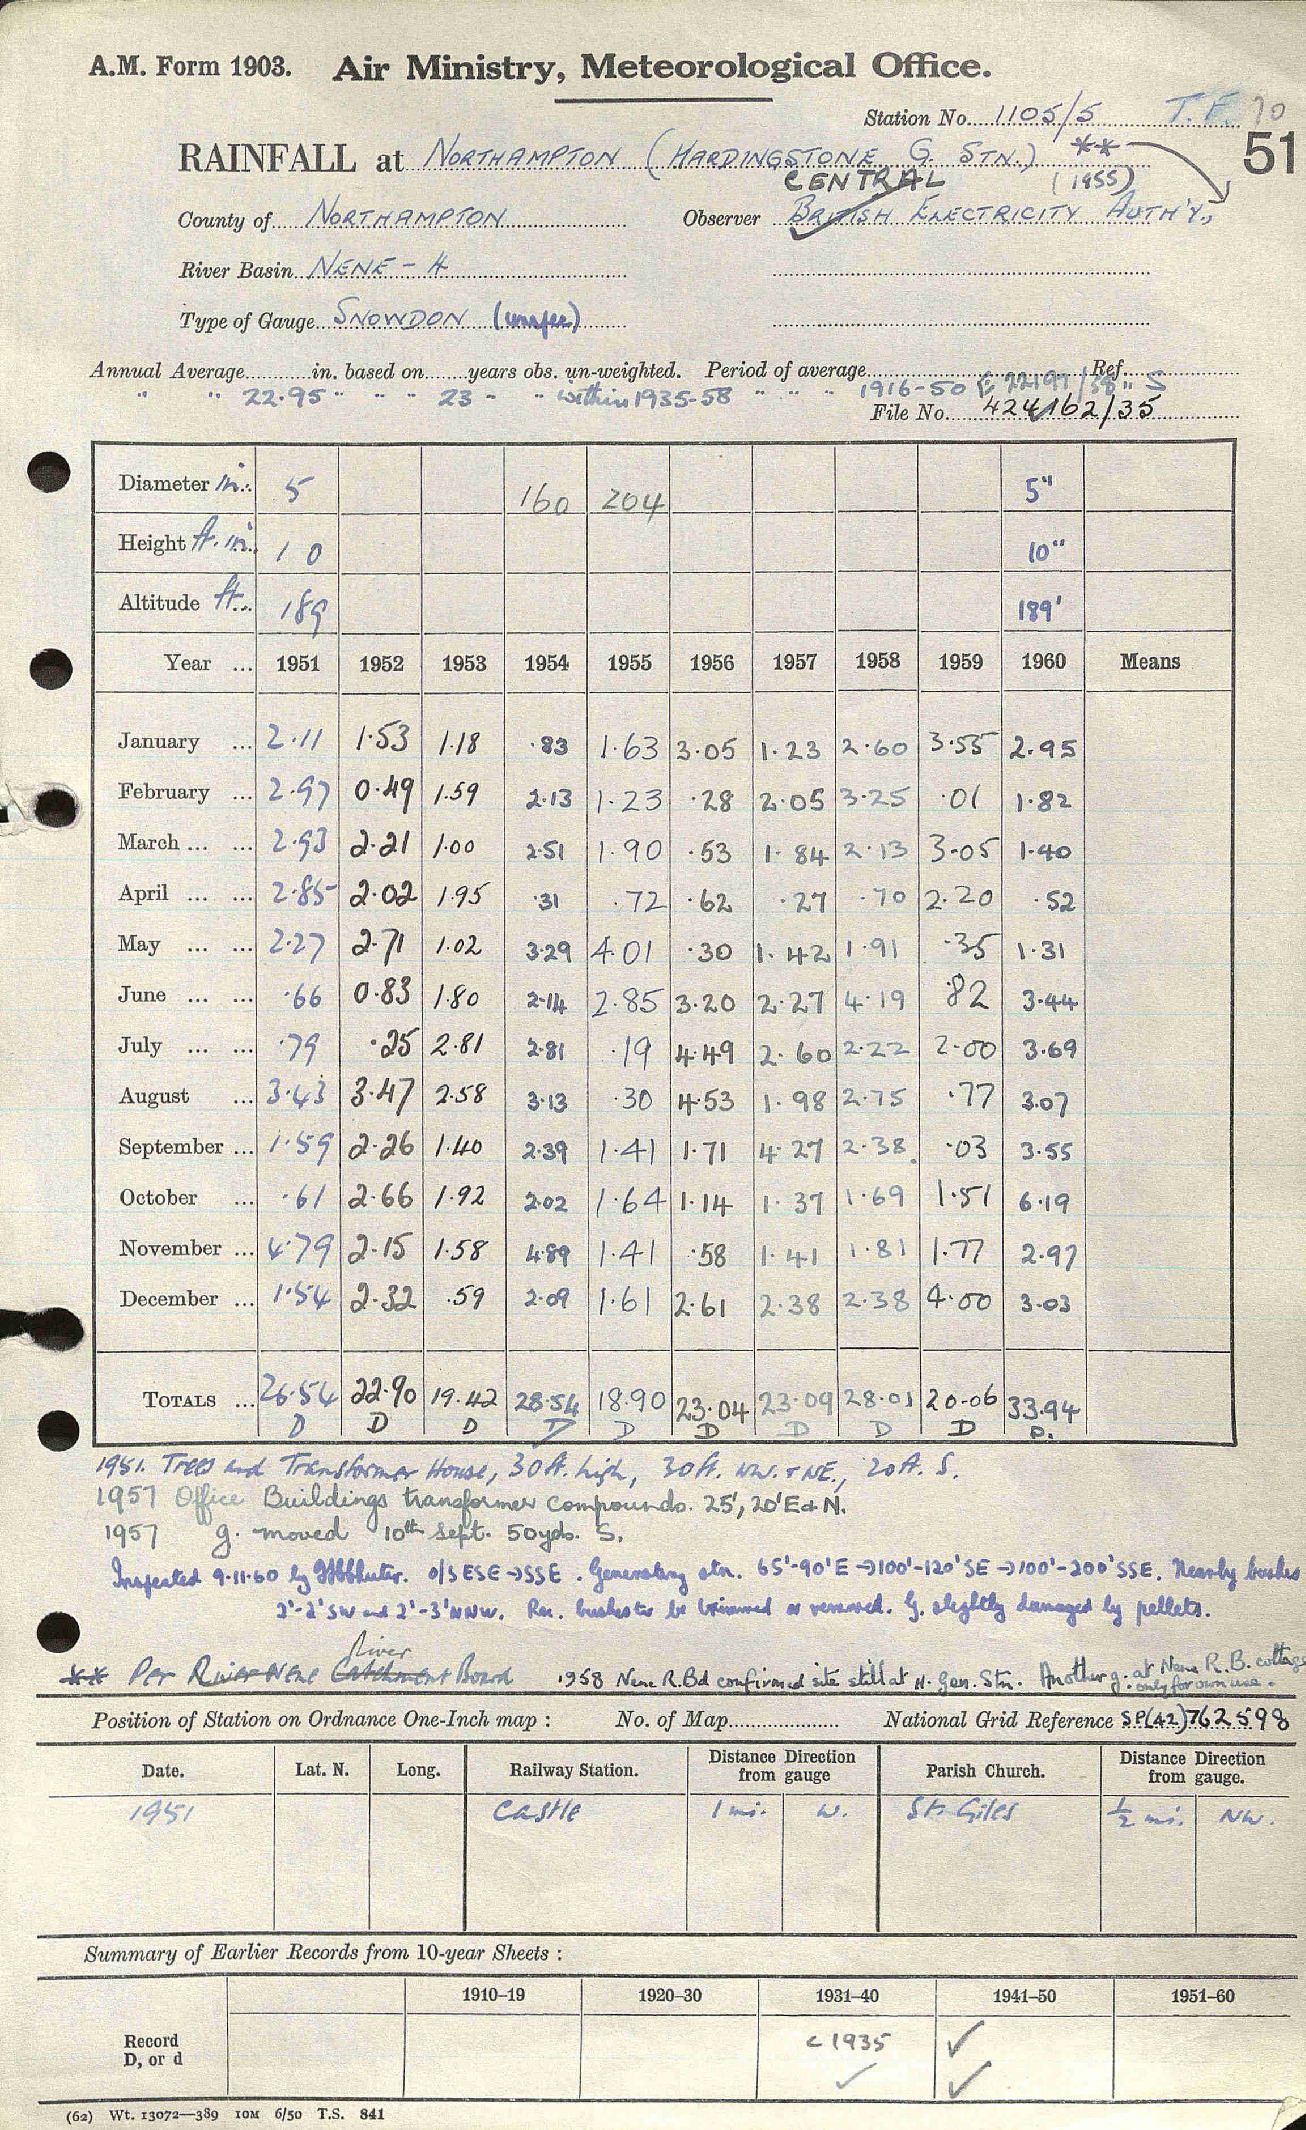 A.M. Form 1903. Air Ministry, Meteorological Office.
Station No. 1105/5 T.F. 70
51
RAINFALL at NORTHAMPTON (HARDINGSTONE G. STN.) **
CENTRAL (1955)
County of NORTHAMPTON Observer BRITISH ELECTRICITY AUTH'Y,
River Basin NENE - H
Type of Gauge SNOWDON
Annual Average in. based on years obs. un-weighted. Period of average Ref.
" " 22.95 " " " 23 " " within 1935-58 " " " 1916-50 S
File No. 424162/35
Diameter in. 5 160 204 5"
Height ft. in. 1 0 10"
Altitude ft. 189 189'
Year ... 1951 1952 1953 1954 1955 1956 1957 1958 1959 1960 Means
January ... 2.11 1.53 1.18 .83 1.63 3.05 1.23 2.60 3.55 2.95
February ... 2.97 0.49 1.59 2.13 1.23 .28 2.05 3.25 .01 1.82
March ... ... 2.93 2.21 1.00 2.51 1.90 .53 1.84 2.13 3.05 1.40
April ... ... 2.85 2.02 1.95 .31 .72 .62 .27 .70 2.20 .52
May ... ... 2.27 2.71 1.02 3.29 4.01 .30 1.42 1.91 .35 1.31
June ... ... .66 0.83 1.80 2.14 2.85 3.20 2.27 4.19 .82 3.44
July ... ... .79 .25 2.81 2.81 .19 4.49 2.60 2.22 2.00 3.69
August ... 3.43 3.47 2.58 3.13 .30 4.53 1.98 2.75 .77 3.07
September ... 1.59 2.26 1.40 2.39 1.41 1.71 4.27 2.38 .03 3.55
October ... .61 2.66 1.92 2.02 1.64 1.14 1.37 1.69 1.51 6.19
November ... 4.79 2.15 1.58 4.89 1.41 .58 1.41 1.81 1.77 2.97
December ... 1.54 2.32 .59 2.09 1.61 2.61 2.38 2.38 4.00 3.03
TOTALS ... 26.54 22.90 19.42 28.54 18.90 23.04 23.09 28.01 20.06 33.94
D D D D D D D D D D.
1951. Trees and Transformer House, 30 ft. high, 30 ft. NW. + NE., 20 ft. S.
1957 Office Buildings transformer compounds. 25', 20' E & N.
1957 g. moved 10th Sept. 50yds. S.
Inspected 9.11.60 by O/S ESE → SSE. Generating stn. 65'-90' E → 100'-120' SE → 100'-200' SSE. Nearby bushes
2'-2' SW and 2'-3' NNW. Rec. bushes to be trimmed or removed. G. slightly damaged by pellets.
River
** Per River Nene Catchment Board 1958 Nene R.Bd confirmed site still at H. Gen. Stn. Another g. at Nene R.B. cottage
only for own use.
Position of Station on Ordnance One-Inch map : No. of Map National Grid Reference SP(42)762598
Date. Lat. N. Long. Railway Station. Distance Direction from gauge Parish Church. Distance Direction from gauge.
1951 Castle 1 mi. W. St. Giles ½ mi. NW.
Summary of Earlier Records from 10-year Sheets :
1910–19 1920–30 1931–40 1941–50 1951–60
Record c 1935 ✓
D, or d ✓ ✓
(62) Wt. 13072—389 10M 6/50 T.S. 841